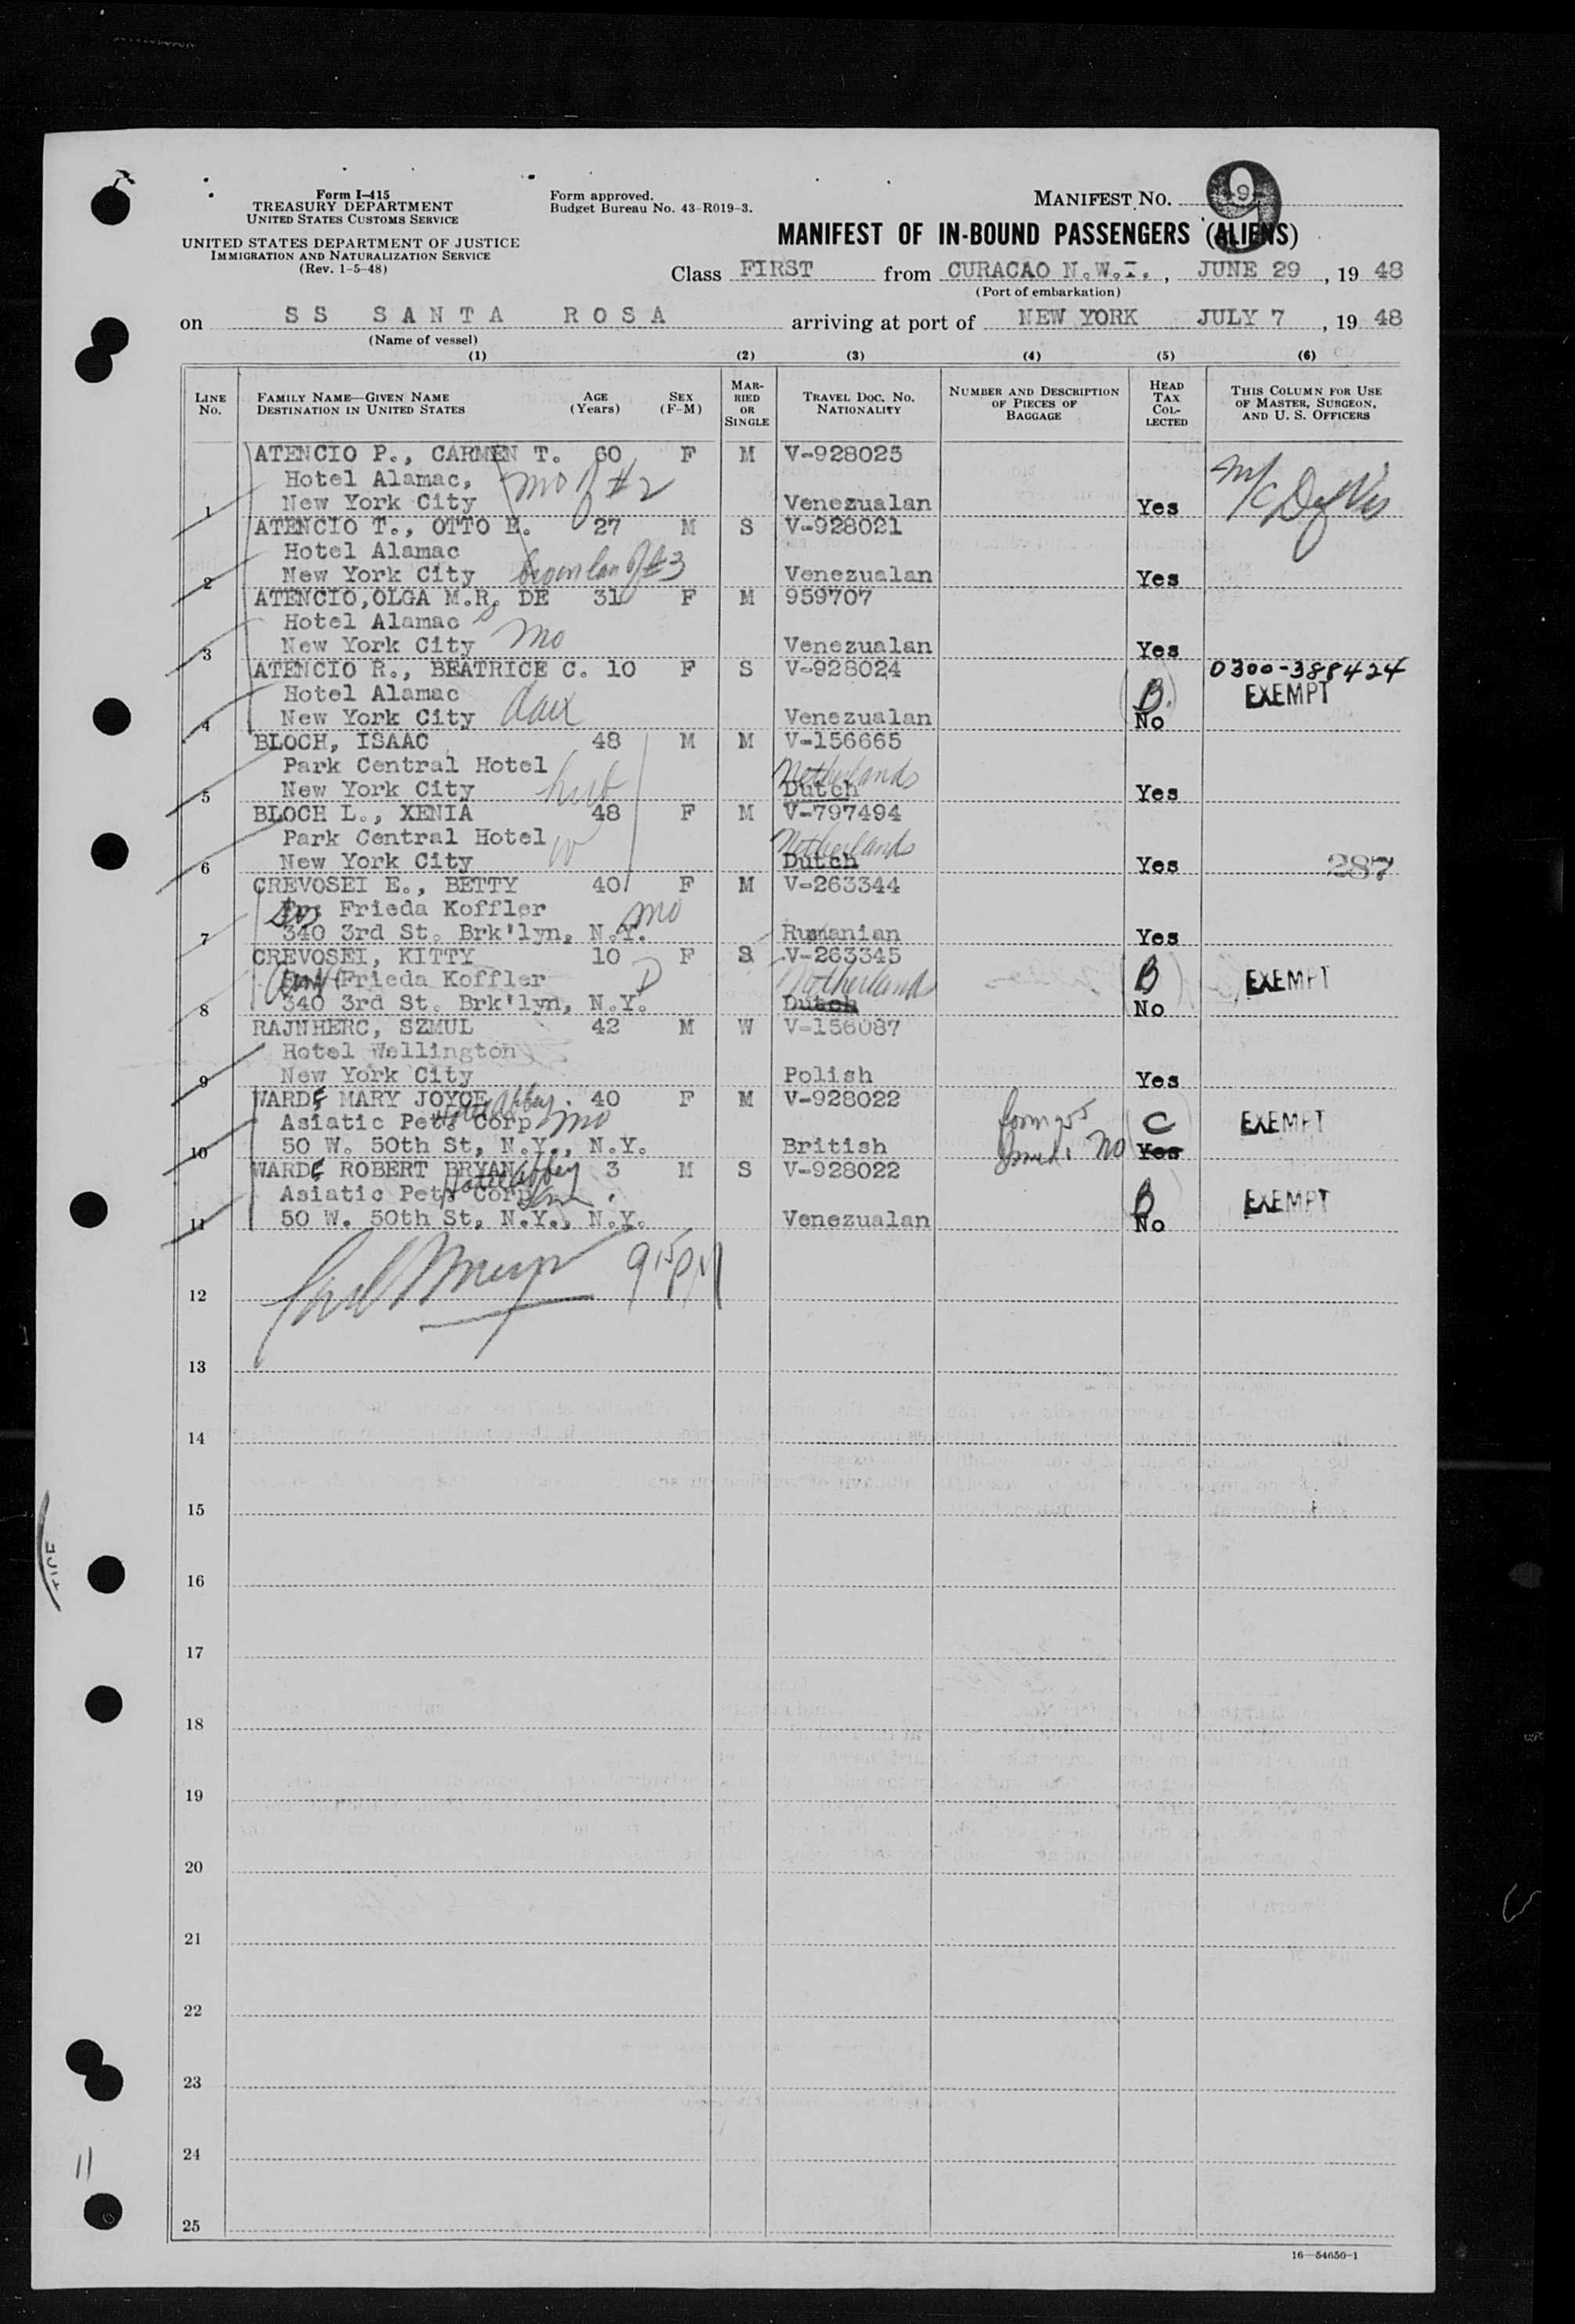 Form I-415
TREASURY DEPARTMENT
UNITED STATES CUSTOMS SERVICE
UNITED STATES DEPARTMENT OF JUSTICE
IMMIGRATION AND NATURALIZATION SERVICE
(Rev. 1-5-48)
Form approved.
Budget Bureau No. 43-R019-3.
MANIFEST NO. 9
9
MANIFEST OF IN-BOUND PASSENGERS (ALIENS)
Class FIRST from CURACAO N.W.I., JUNE 29, 19 48
(Port of embarkation)
on SS SANTA ROSA arriving at port of NEW YORK JULY 7, 19 48
(Name of vessel)
(1) (2) (3) (4) (5) (6)
LINE NO. FAMILY NAME—GIVEN NAME DESTINATION IN UNITED STATES AGE (Years) SEX (F-M) MARRIED OR SINGLE TRAVEL DOC. NO. NATIONALITY NUMBER AND DESCRIPTION OF PIECES OF BAGGAGE HEAD TAX COLLECTED THIS COLUMN FOR USE OF MASTER, SURGEON, AND U. S. OFFICERS
ATENCIO P., CARMEN T. 60 F M V-928025
Hotel Alamac, mo of #2
1 New York City Venezualan Yes
ATENCIO T., OTTO E. 27 M S V-928021
Hotel Alamac
2 New York City of #3 Venezualan Yes
ATENCIO, OLGA M.R. DE 31 F M 959707
Hotel Alamac
3 New York City mo Venezualan Yes
ATENCIO R., BEATRICE C. 10 F S V-928024 0300-388424
Hotel Alamac B. EXEMPT
4 New York City dau Venezualan No
BLOCH, ISAAC 48 M M V-156665
Park Central Hotel Netherlands
5 New York City husb Dutch Yes
BLOCH L., XENIA 48 F M V-797494
Park Central Hotel W Netherlands
6 New York City Dutch Yes 287
CREVOSEI E., BETTY 40 F M V-263344
Frieda Koffler mo
7 340 3rd St. Brk'lyn, N.Y. Rumanian Yes
CREVOSEI, KITTY 10 F S V-263345
Frieda Koffler D Netherlands B EXEMPT
8 340 3rd St. Brk'lyn, N.Y. Dutch No
RAJNHERC, SZMUL 42 M W V-156087
Hotel Wellington
9 New York City Polish Yes
WARDE MARY JOYCE 40 F M V-928022
Asiatic Pet. Corp mo C EXEMPT
10 50 W. 50th St, N.Y., N.Y. British No Yes
WARDE ROBERT BRYAN 3 M S V-928022
Asiatic Pet. Corp B EXEMPT
11 50 W. 50th St, N.Y., N.Y. Venezualan No
9 15 PM
12
13
14
15
16
17
18
19
20
21
22
23
24
25
11
16—54650-1